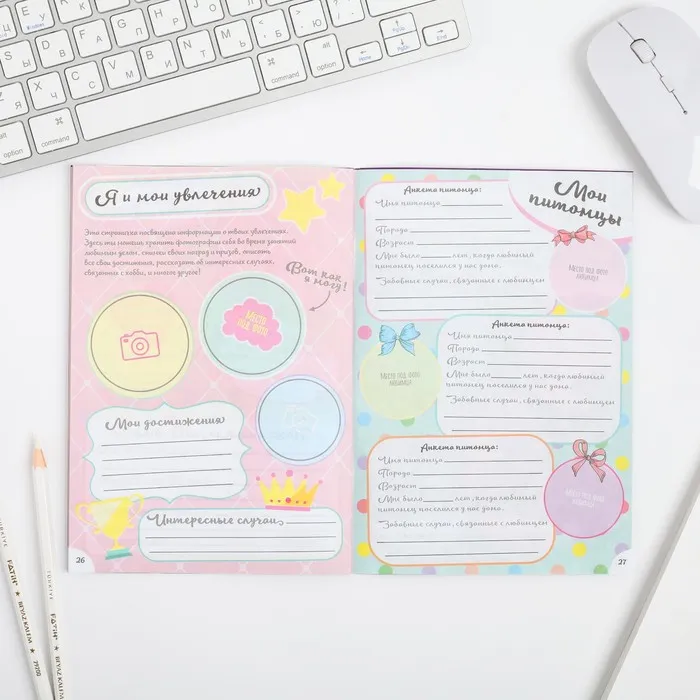 Home
Pg Up
End
Pg Dn
command
alt
option
command
option
Я и мои увлечения
Эта страничка посвящена информации о твоих увлечениях.
Здесь ты можешь хранить фотографии себя во время занятий
любимым делом, снимки своих наград и призов, описать
все свои достижения, рассказать об интересных случаях,
связанных с хобби, и многое другое!
Вот как
я могу!
Место
под фото
Мои достижения
Интересные случаи
26
Мои
питомцы
Анкета питомца:
Имя питомца
Порода
Возраст
Мне было лет, когда любимый
питомец поселился у нас дома.
Забавные случаи, связанные с любимцем
Место под фото
любимца
Анкета питомца:
Имя питомца
Порода
Возраст
Мне было лет, когда любимый
питомец поселился у нас дома.
Забавные случаи, связанные с любимцем
Место под фото
любимца
Анкета питомца:
Имя питомца
Порода
Возраст
Мне было лет, когда любимый
питомец поселился у нас дома.
Забавные случаи, связанные с любимцем
Место под фото
любимца
27
TÜRKİYE
FATİH
BEYAZ KALEM
TÜRKİYE
FATİH
BEYAZ KALEM